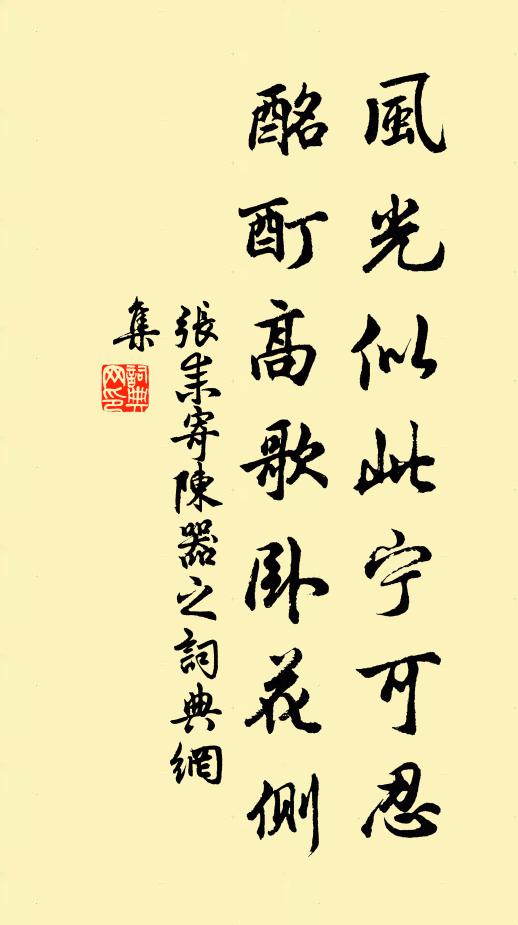 風光似此宁可忍
酩酊高歌卧花側
張耒寄陳器之詞典網
集
詞典
网印